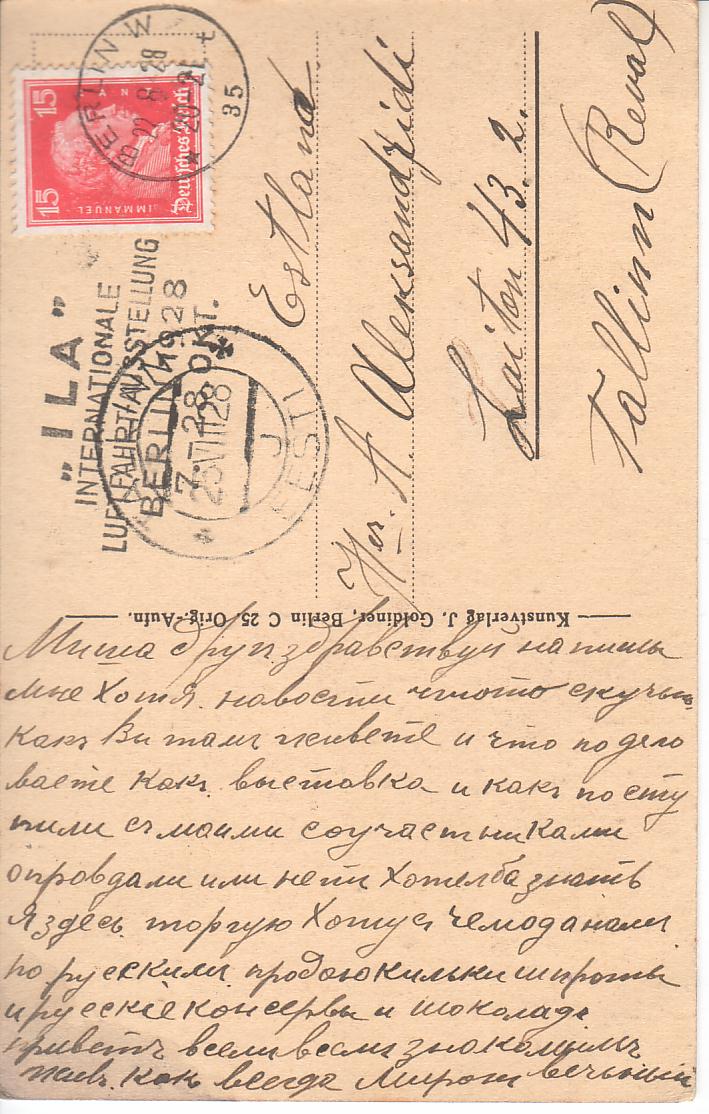 BERLIN W
22.8.28
20-21
35
15
15
IMMANUEL
Deutsches Reich
"ILA"
INTERNATIONALE
LUFTFAHRT-AUSSTELLUNG
BERLIN 1928
7.-28. OKT.
25 VIII 28
J
EESTI
Estland
Her. A. Aleksandridi
Laiton 43. 2.
Tallinn (Reval)
Kunstverlag J. Goldiner, Berlin C 25. Orig.-Aufn.
Миша друг здравствуй напиши
мне Хотя новости чтото скучно
какъ Ви тамъ живете и что поdело
ваете какъ выставка и какъ посту
пили съ маими соучастниками
оправдали или нетъ Хотелба знать
Я здесь торгую чемоданами
по русскими продаю кильки шпроты
и русскіе консервы и шоколадъ
приветъ всем всем знакомимъ
как всегда